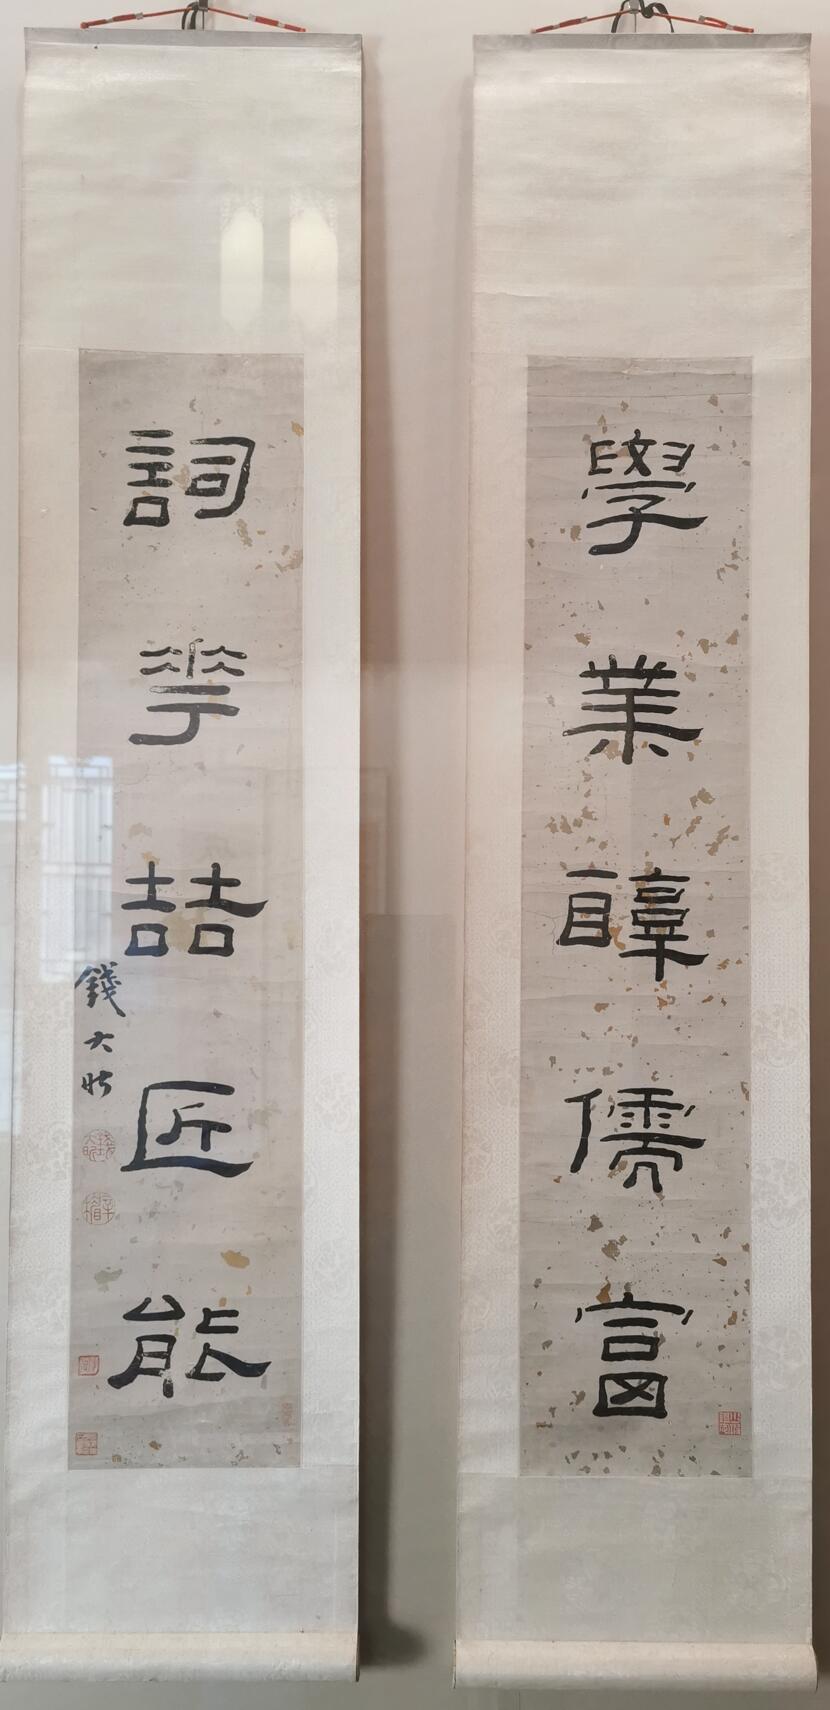 學業醇儒富
詞華喆匠能
錢大昕